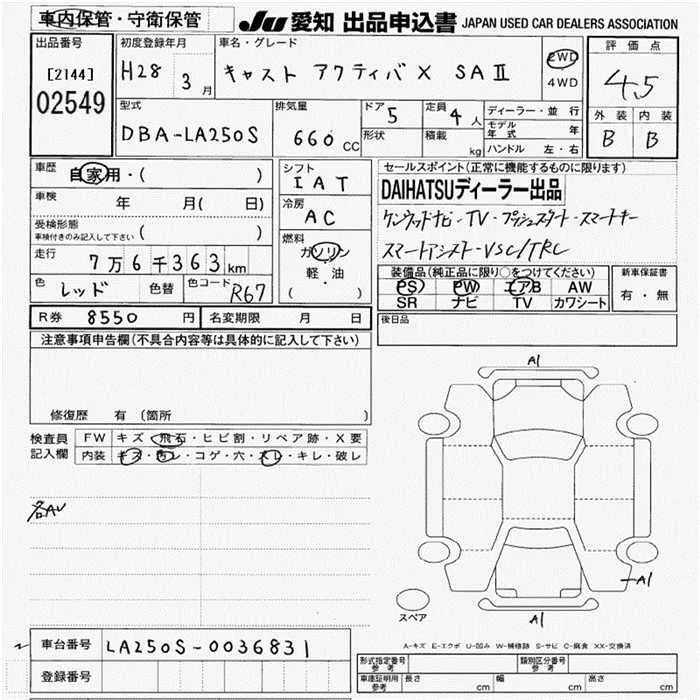 車内保管・守衛保管 JU 愛知 出品申込書 JAPAN USED CAR DEALERS ASSOCIATION
出品番号 初度登録年月 車名・グレード 評価点
[2144] H28 3月 キャスト アクティバ X SAⅡ 2WD 4WD 4.5
02549 型式 排気量 ドア 5 定員 4人 ディーラー・並行 外装 内装
DBA-LA250S 660 CC 形状 積載 kg モデル年式 年 B B
ハンドル 左・右
車歴 自家用・( ) シフト IAT セールスポイント(正常に機能するものに限ります)
車検 年 月( 日) 冷房 AC DAIHATSUディーラー出品
受検形態 ( ) ケンウッドナビ・TV・プッシュスタート・スマートキー
車検付きのみ記入して下さい 燃料 ガソリン スマートアシスト・VSC/TRC
走行 7万6千363km 軽・油 装備品(純正品に限り○をつけてください) 新車保証書
色 レッド 色替 色コード R67 ( ・ ) PS PW エアB AW 有・無
SR ナビ TV カワシート
R券 8550円 名変期限 月 日 後日品
注意事項申告欄(不具合内容等は具体的に記入して下さい)
A1
修復歴 有 (箇所 )
検査員 FW キズ・飛石・ヒビ割・リペア跡・X要
記入欄 内装 キズ・汚レ・コゲ・穴・スレ・キレ・破レ
各AU
A1
スペア A1
A-キズ E-エクボ U-凹み W-補修跡 S-サビ C-腐食 XX-交換済
車台番号 LA250S-0036831
登録番号 形式指定番号 参考 類別区分番号 参考
車庫証明用 参考 長さ cm 幅 cm 高さ cm